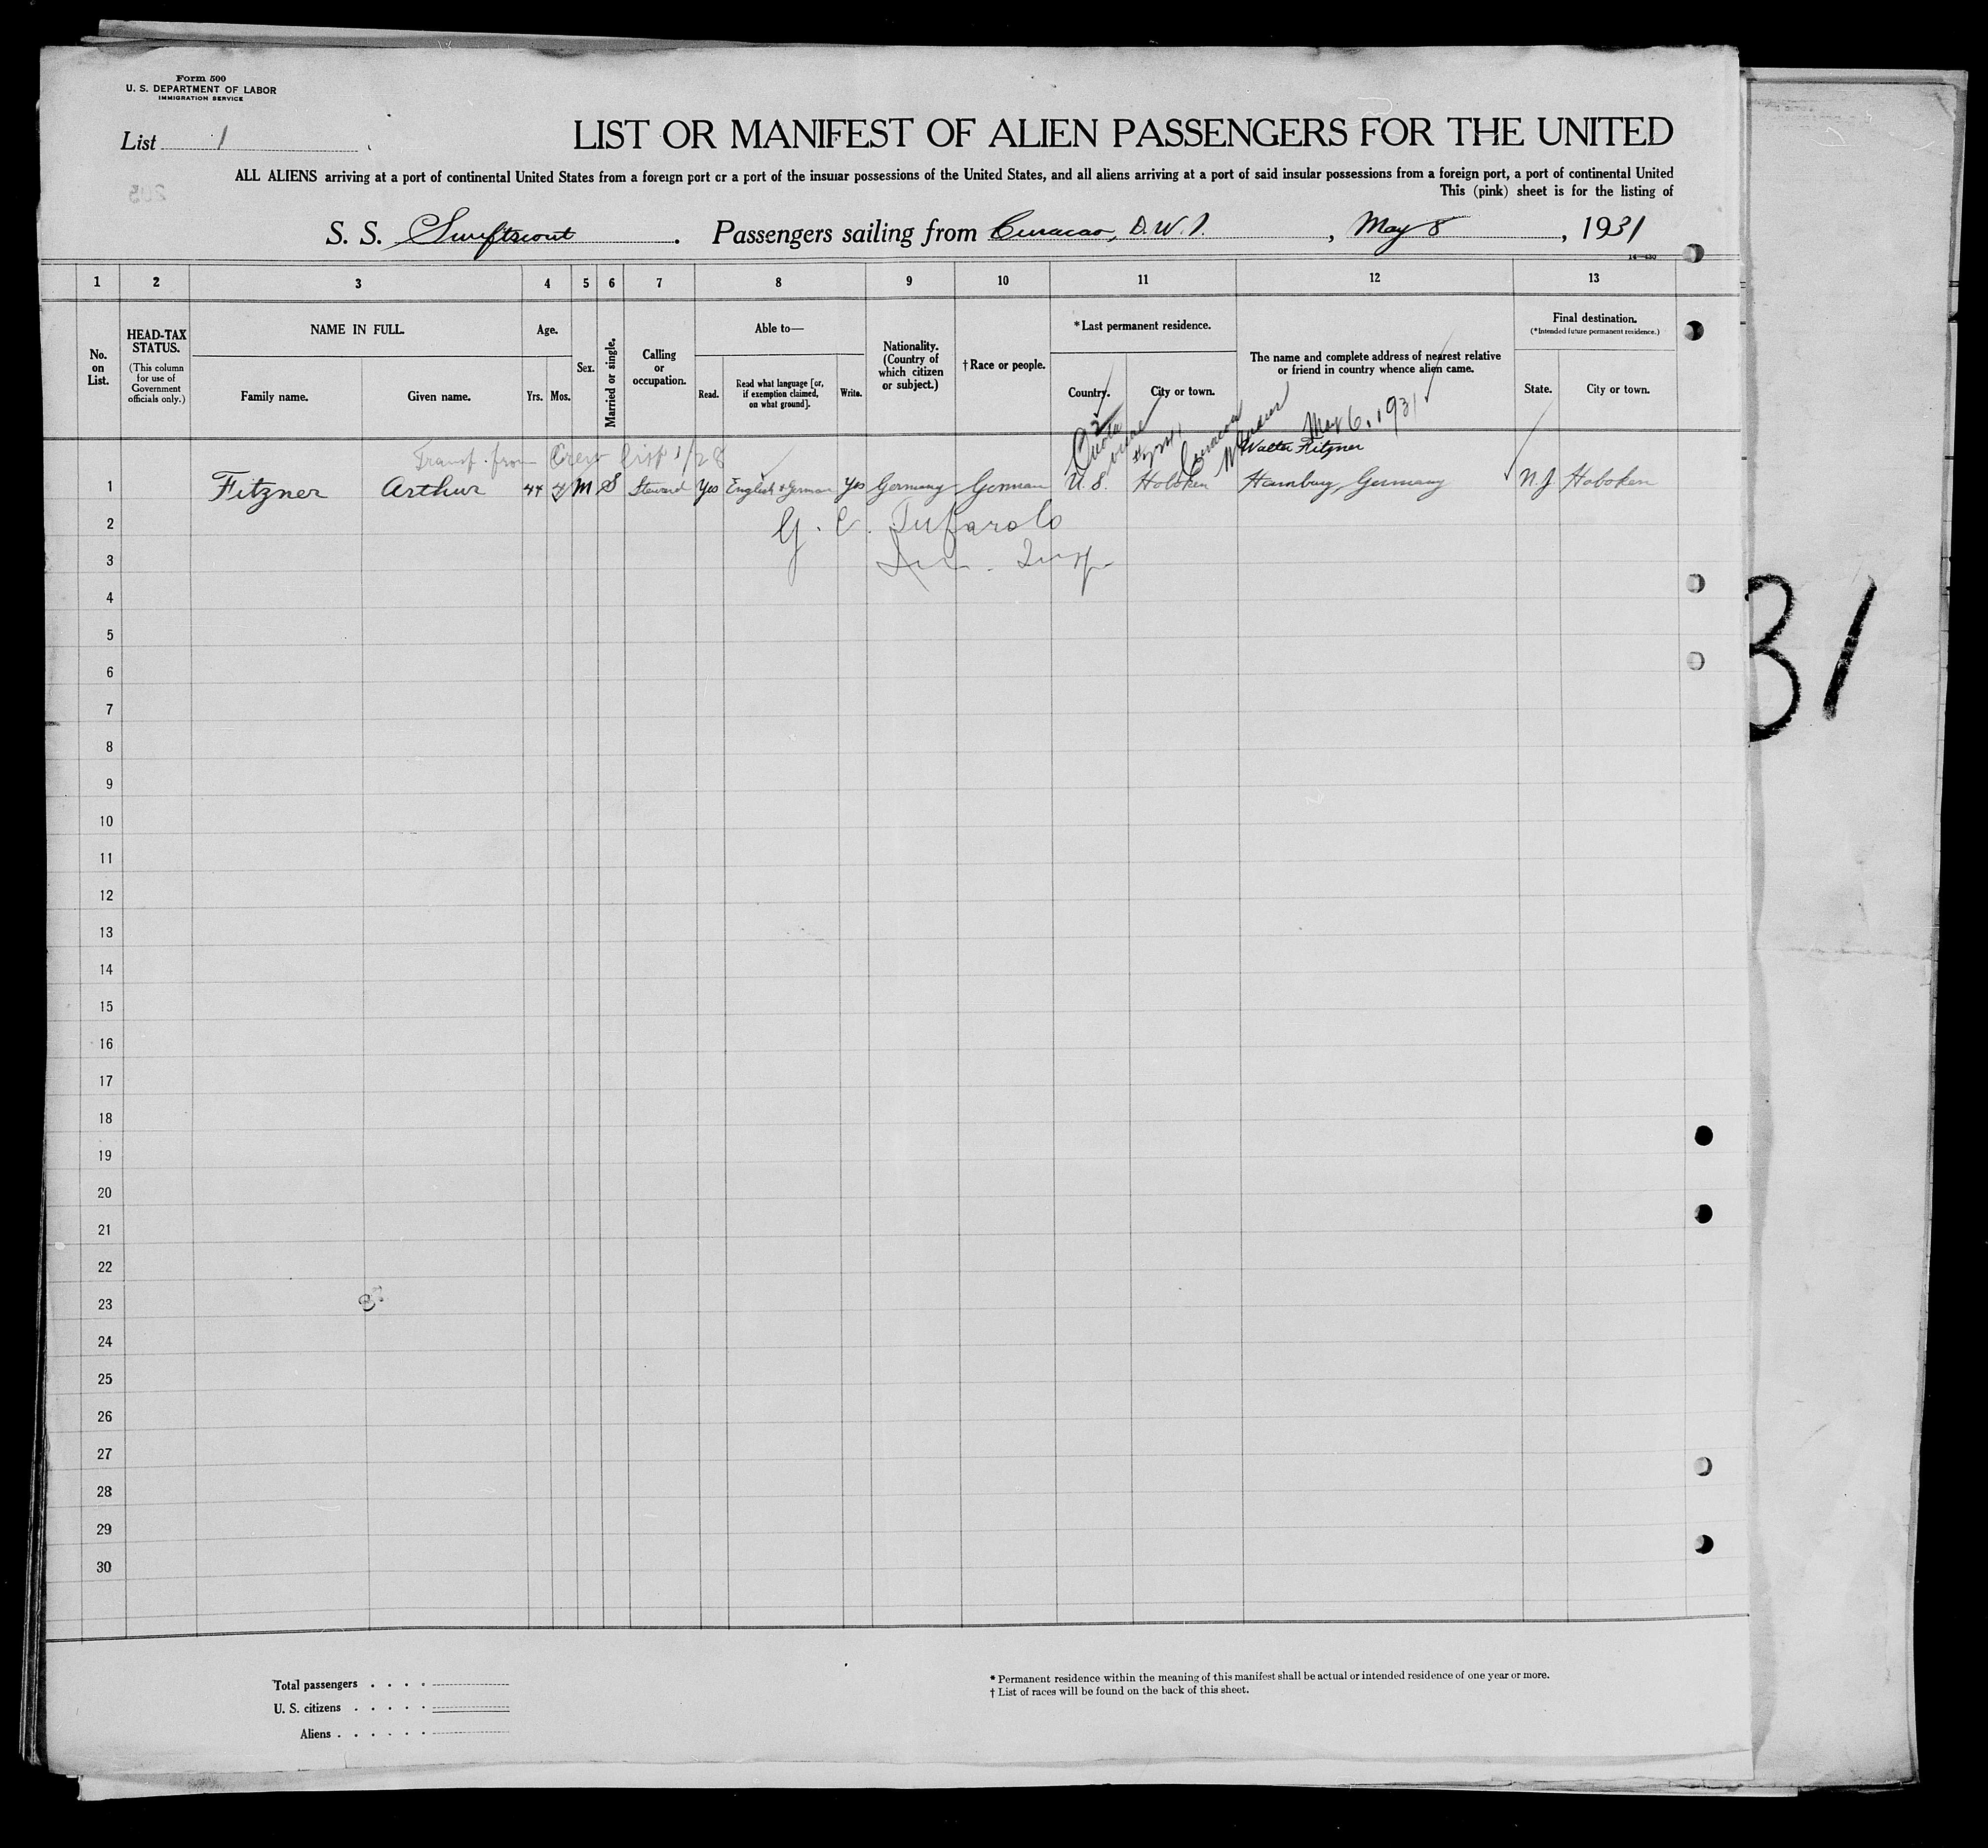 Form 500
U. S. DEPARTMENT OF LABOR
IMMIGRATION SERVICE
List 1
LIST OR MANIFEST OF ALIEN PASSENGERS FOR THE UNITED
ALL ALIENS arriving at a port of continental United States from a foreign port or a port of the insular possessions of the United States, and all aliens arriving at a port of said insular possessions from a foreign port, a port of continental United
This (pink) sheet is for the listing of
S. S. Swiftscout . Passengers sailing from Curacao, D.W.I. , May 8 , 1931
1 2 3 4 5 6 7 8 9 10 11 12 13
No. on List.
HEAD-TAX STATUS.
(This column for use of Government officials only.)
NAME IN FULL.
Family name.
Given name.
Age.
Yrs.
Mos.
Sex.
Married or single.
Calling or occupation.
Able to—
Read.
Read what language [or, if exemption claimed, on what ground].
Write.
Nationality. (Country of which citizen or subject.)
† Race or people.
*Last permanent residence.
Country.
City or town.
The name and complete address of nearest relative or friend in country whence alien came.
Final destination.
(*Intended future permanent residence.)
State.
City or town.
Quota
Curacao
May 6, 1931
Transf. from Crew List 1/28
Walter Fitzner
1 Fitzner Arthur 44 M S Steward Yes English & German Yes Germany German U.S. Hoboken Hamburg, Germany N.J. Hoboken
2
G. C. Tufarolo
3
Insp
4
5
6
7
8
9
10
11
12
13
14
15
16
17
18
19
20
21
22
23
24
25
26
27
28
29
30
Total passengers
U. S. citizens
Aliens
* Permanent residence within the meaning of this manifest shall be actual or intended residence of one year or more.
† List of races will be found on the back of this sheet.
31